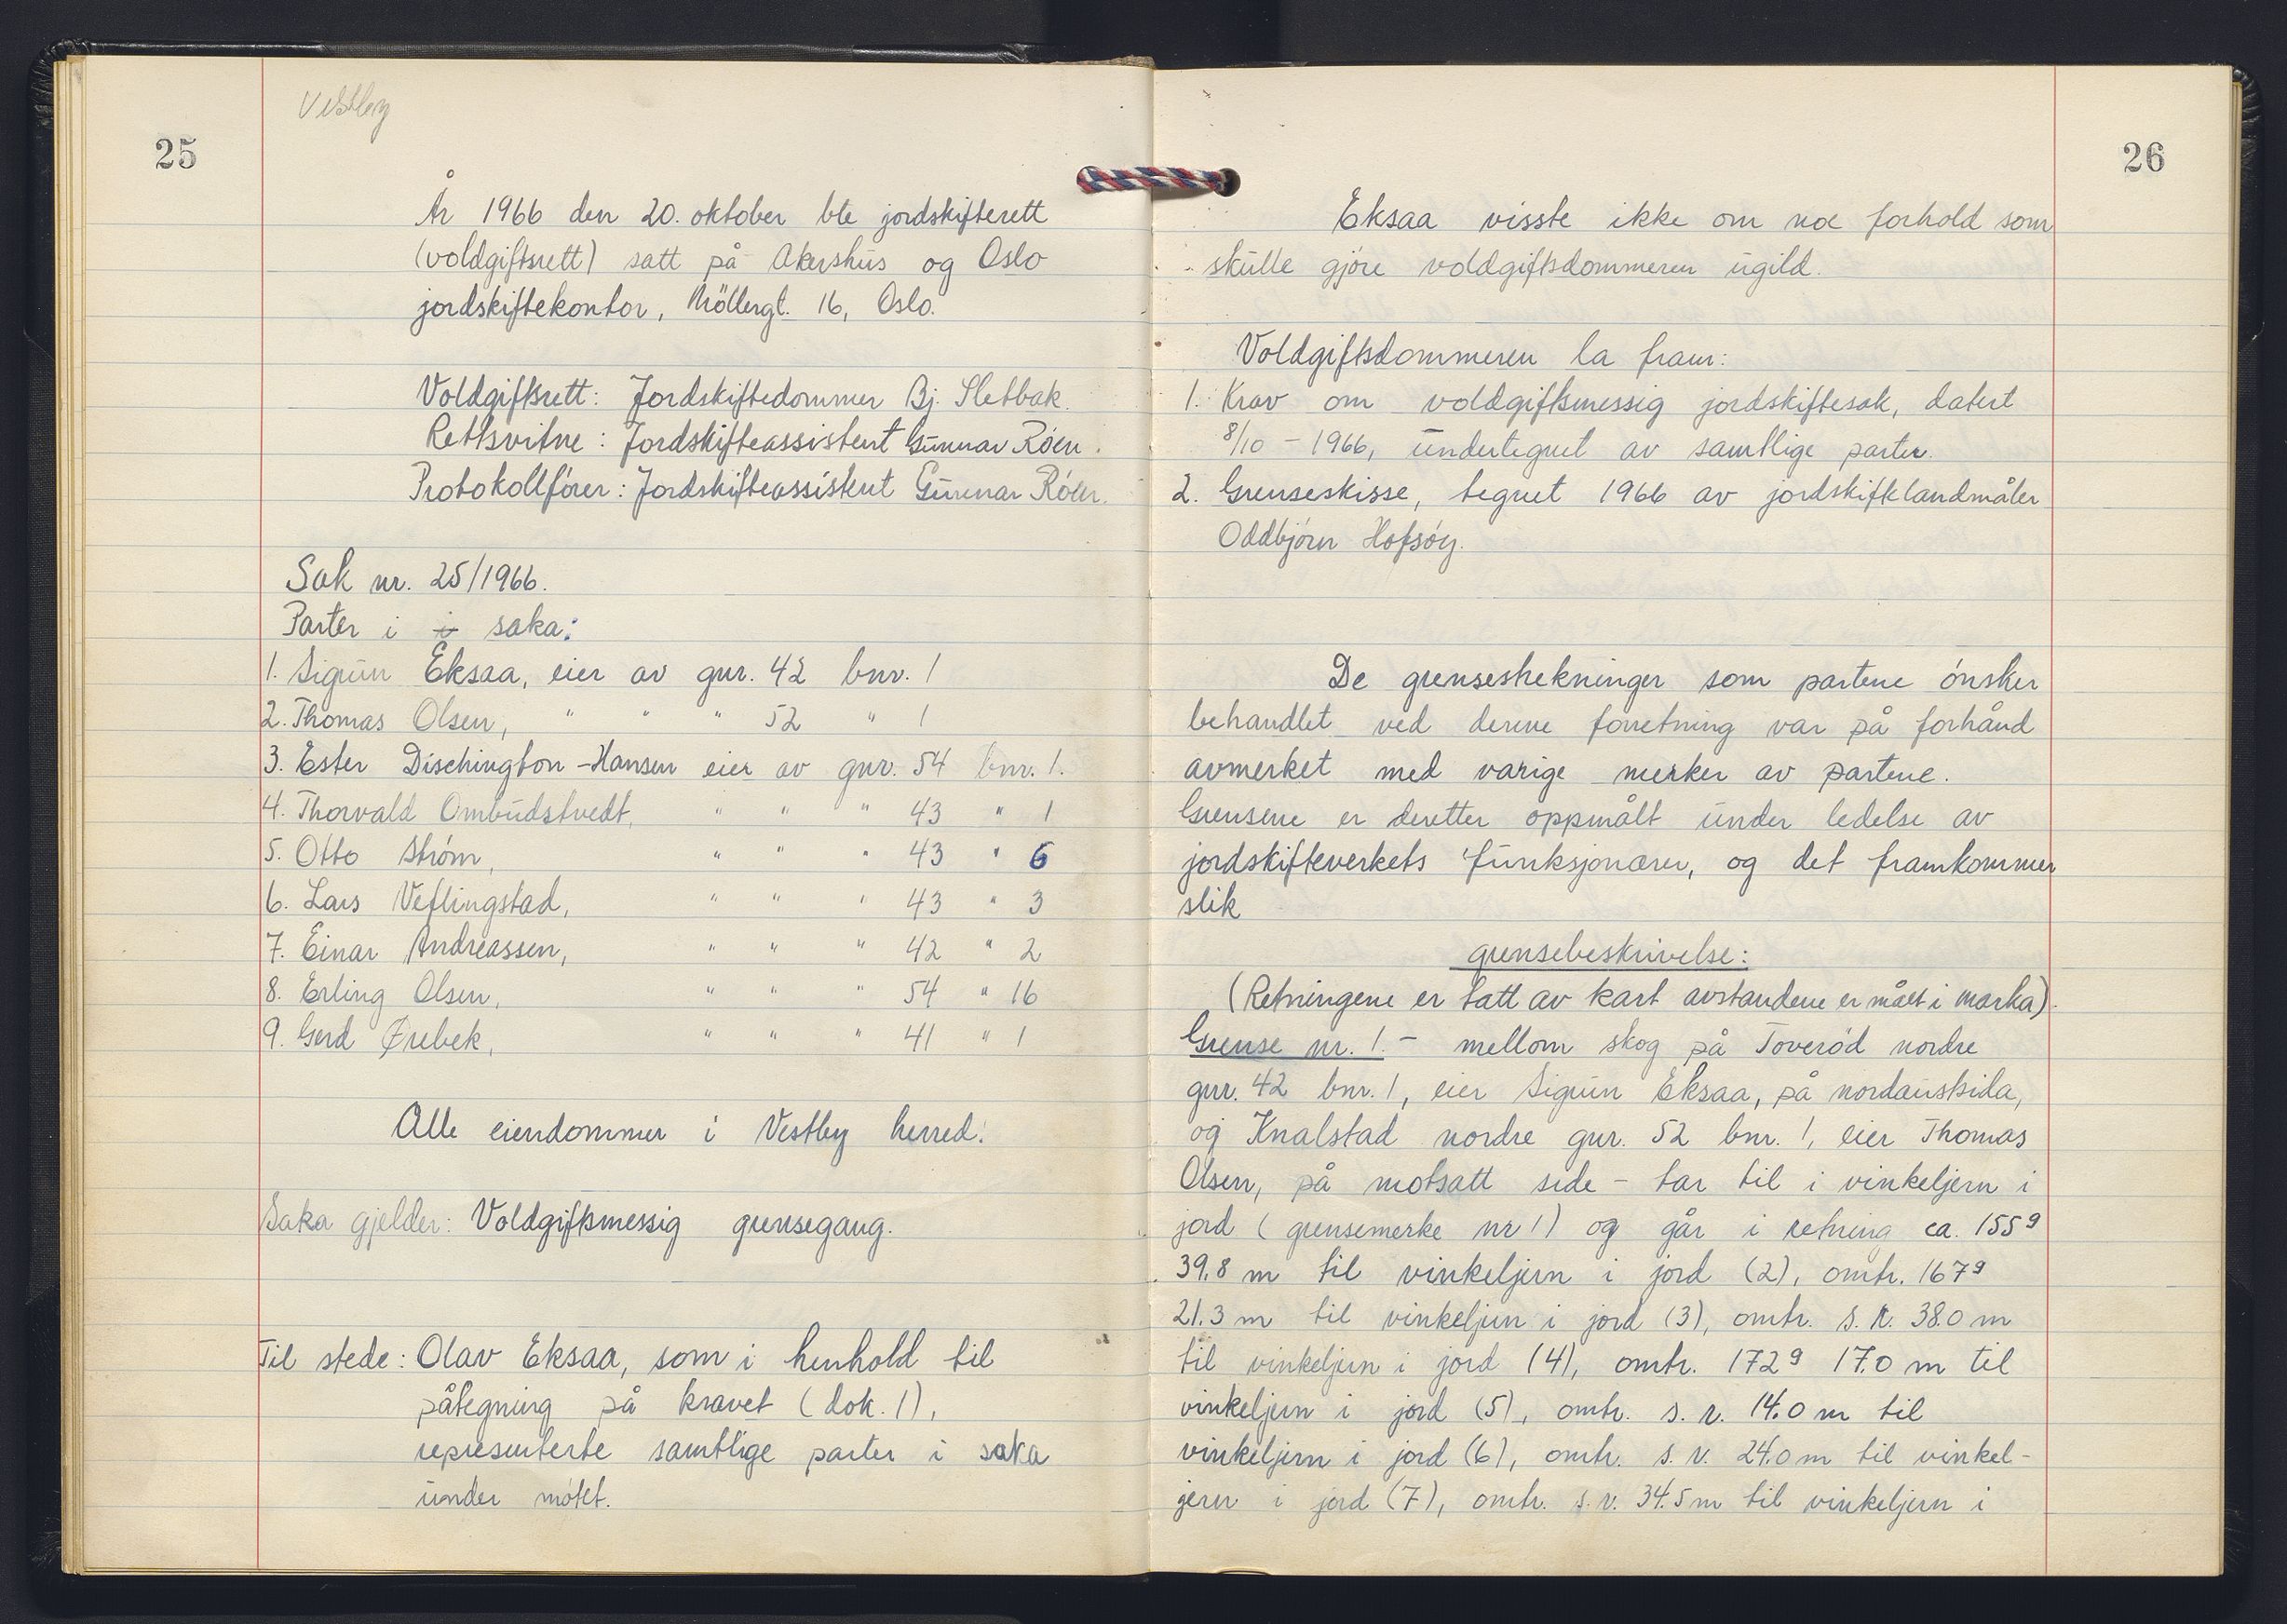 Vestby
25
År 1966 den 20. oktober ble jordskifterett
(voldgiftsrett) satt på Akershus og Oslo
jordskiftekontor, Möllergt. 16, Oslo.
Voldgiftsrett: Jordskiftedommer Bj. Sletbak.
Rettsvitne: Jordskifteassistent Gunnar Röen.
Protokollförer: Jordskifteassistent Gunnar Röen.
Sak nr. 25/1966.
Parter i i saka:
1. Sigrun Eksaa, eier av gnr. 42 bnr. 1
2. Thomas Olsen, " " " 52 " 1
3. Ester Dischington-Hansen eier av gnr. 54 bnr. 1.
4. Thorvald Ombudstvedt, " " " 43 " 1
5. Otto Ström, " " " 43 " 6
6. Lars Veflingstad, " " " 43 " 3
7. Einar Andreassen, " " " 42 " 2
8. Erling Olsen, " " " 54 " 16
9. Gerd Ørebek, " " " 41 " 1
Alle eiendommer i Vestby herred.
Saka gjelder: Voldgiftsmessig grensegang.
Til stede: Olav Eksaa, som i henhold til
påtegning på kravet (dok. 1),
representerte samtlige parter i saka
under mötet.
26
Eksaa visste ikke om noe forhold som
skulle gjöre voldgiftsdommeren ugild.
Voldgiftsdommeren la fram:
1. Krav om voldgiftsmessig jordskiftesak, datert
8/10 - 1966, undertegnet av samtlige parter.
2. Grenseskisse, tegnet 1966 av jordskiftelandmåler
Oddbjörn Hofsöy.
De grensestrekninger som partene önsker
behandlet ved denne forretning var på forhånd
avmerket med varige merker av partene.
Grensene er deretter oppmålt under ledelse av
jordskifteverkets funksjonærer, og det framkommer
slik
grensebeskrivelse:
(Retningene er tatt av kart avstandene er målt i marka).
Grense nr. 1. - mellom skog på Toveröd nordre
gnr. 42 bnr. 1, eier Sigrun Eksaa, på nordaustsida,
og Knalstad nordre gnr. 52 bnr. 1, eier Thomas
Olsen, på motsatt side - tar til i vinkeljern i
jord (grensemerke nr 1) og går i retning ca. 155g
39.8 m til vinkeljern i jord (2), omtr. 167g
21.3 m til vinkeljern i jord (3), omtr. s. r. 38.0 m
til vinkeljern i jord (4), omtr. 172g 17.0 m til
vinkeljern i jord (5), omtr. s. r. 14.0 m til
vinkeljern i jord (6), omtr. s. r. 24.0 m til vinkel-
jern i jord (7), omtr. s. r. 34.5 m til vinkeljern i